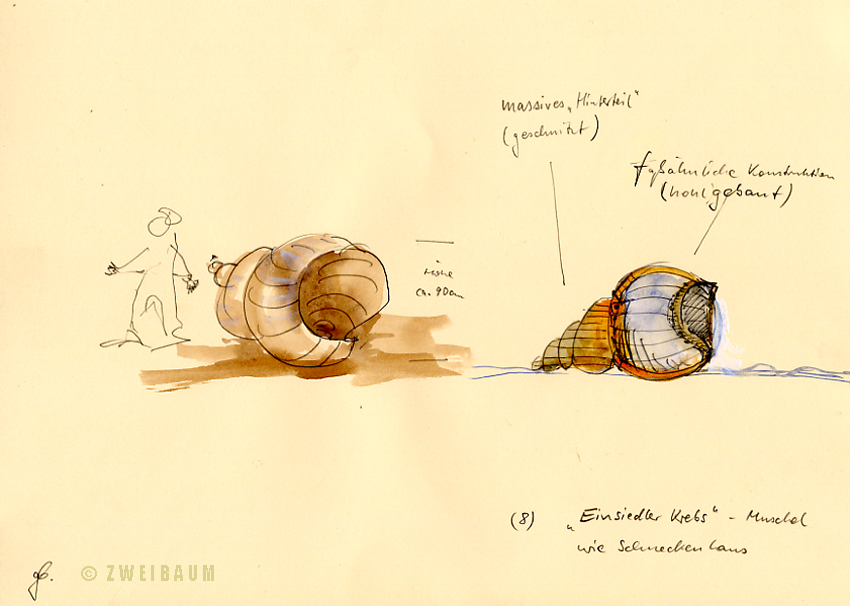 massives „Hinterteil“
(geschnitzt)
Faßähnliche Konstruktion
(hohl gebaut)
Höhe
ca. 90cm
(8) „Einsiedler Krebs“ - Muschel
wie Schneckenhaus
© ZWEIBAUM